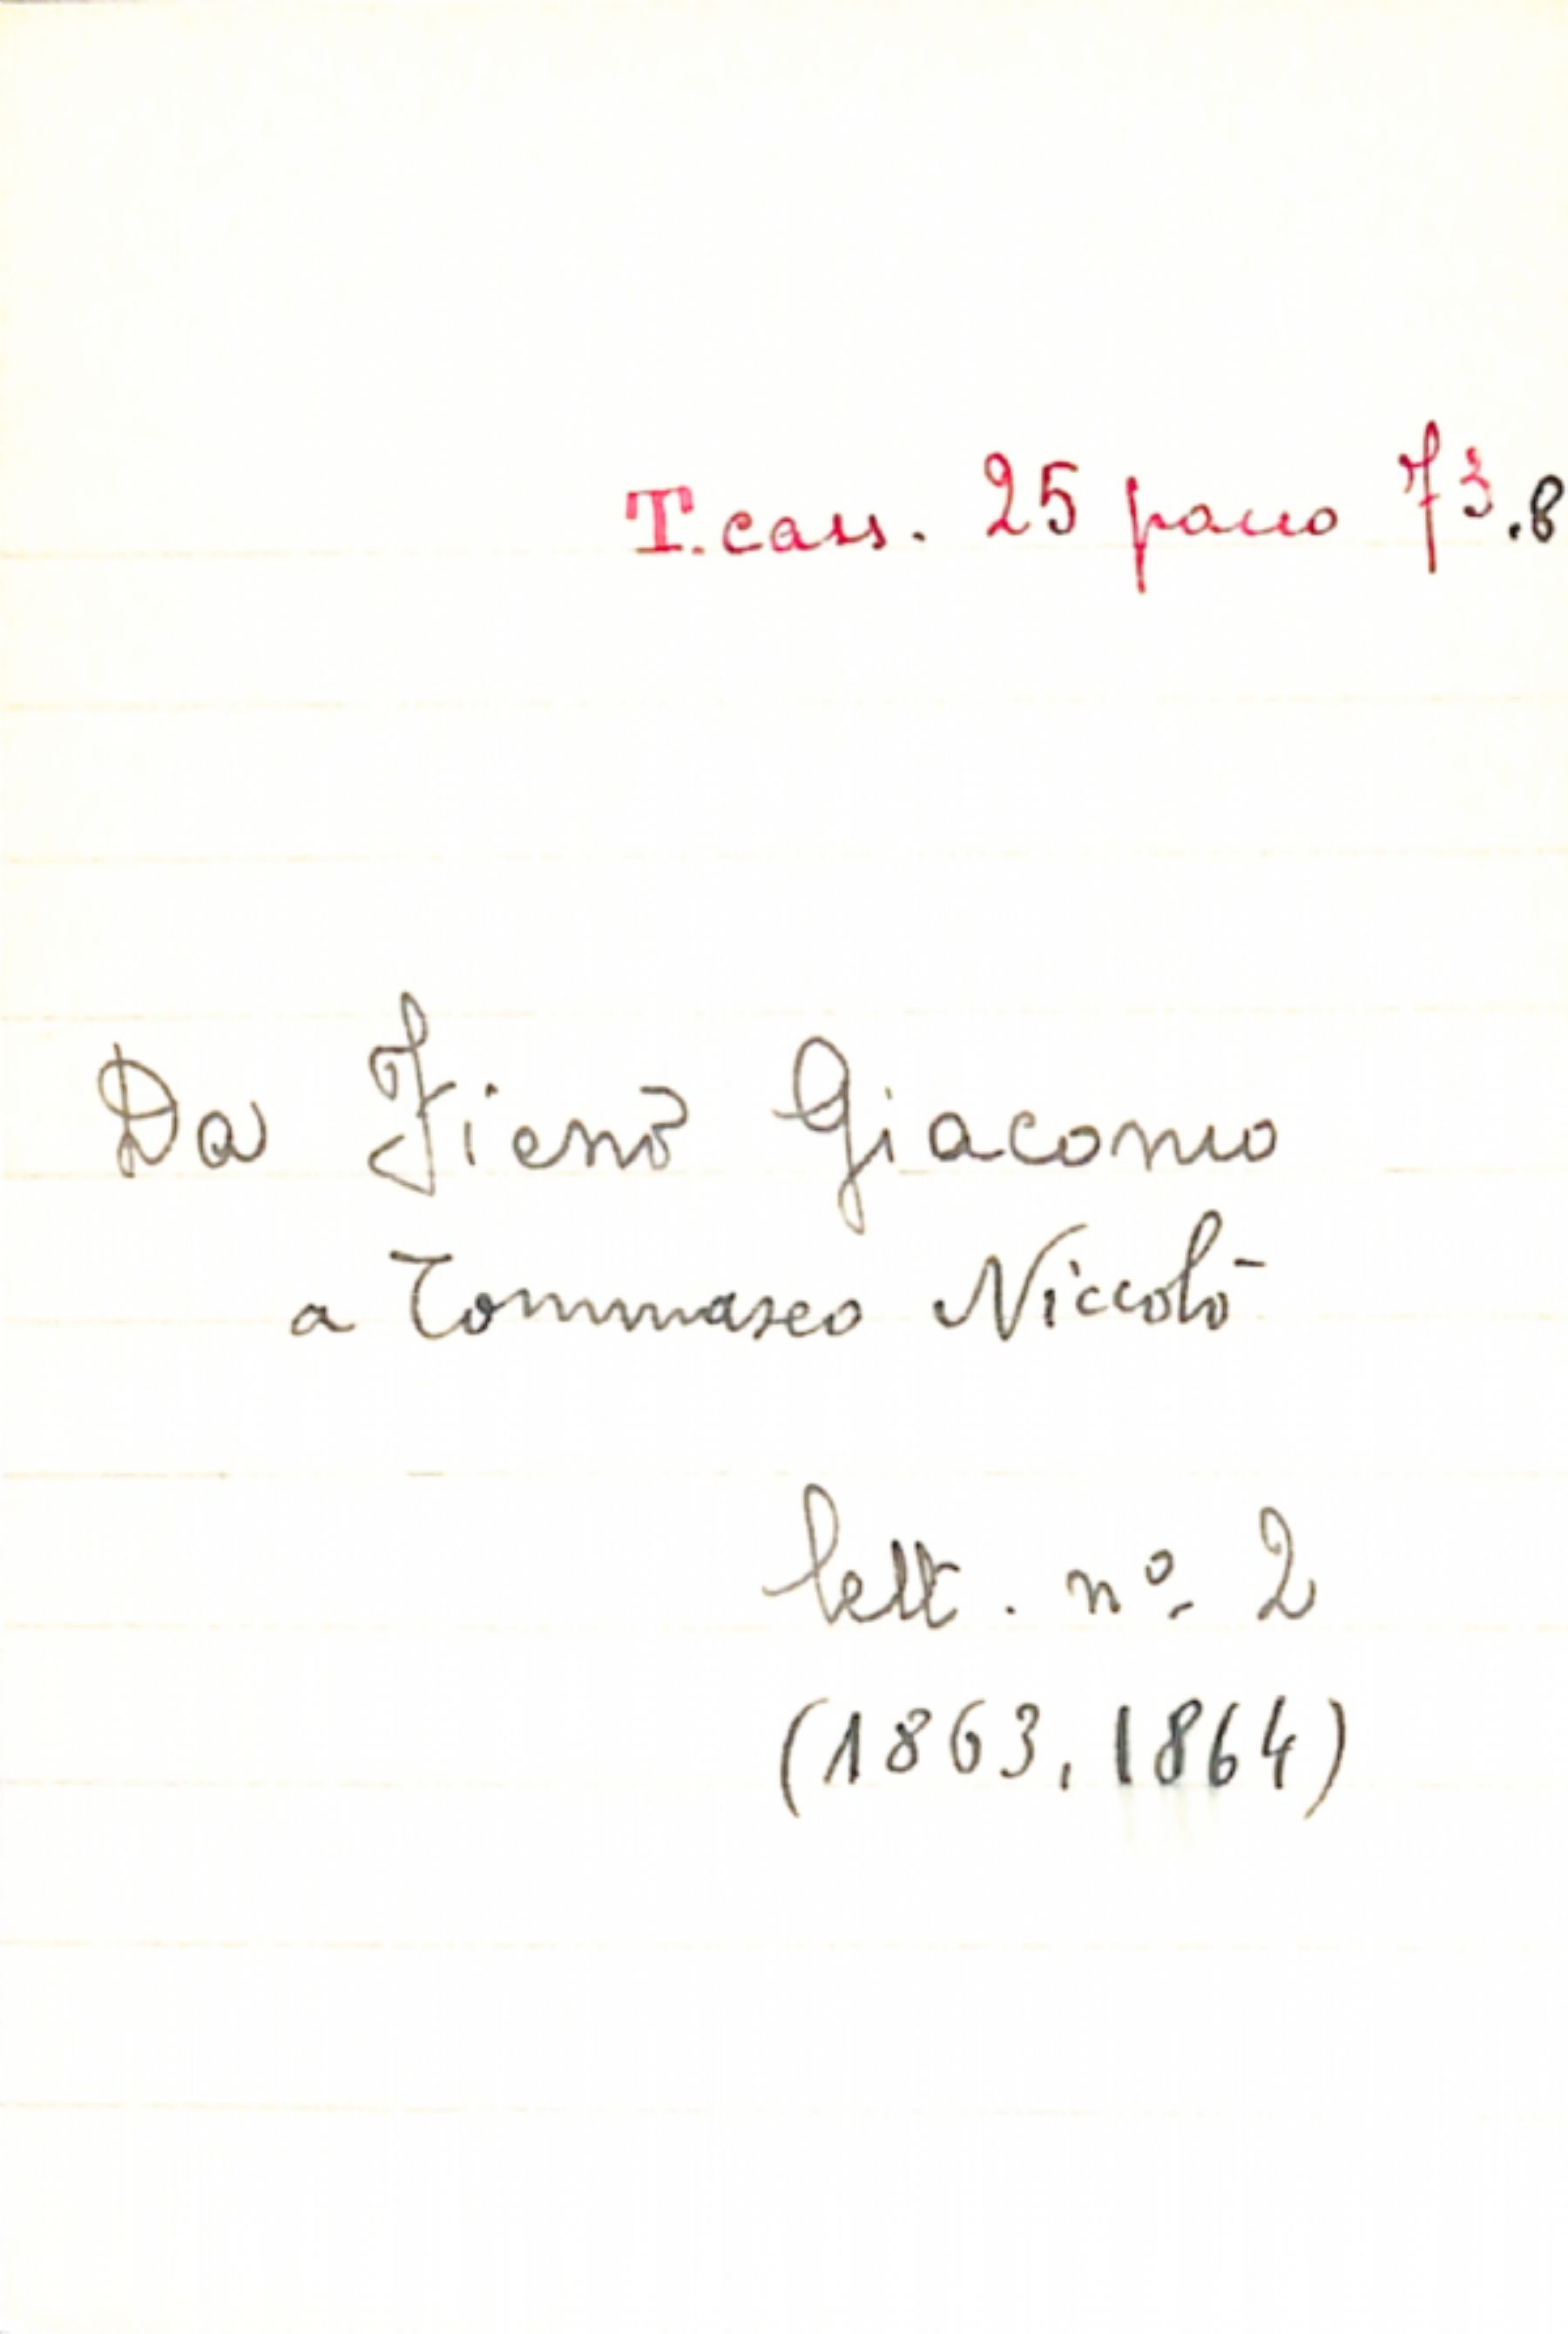 T. cass. 25 pacco 73.8
Da Fienò Giacomo
a Tommaseo Niccolò
lett. nº 2
(1863, 1864)